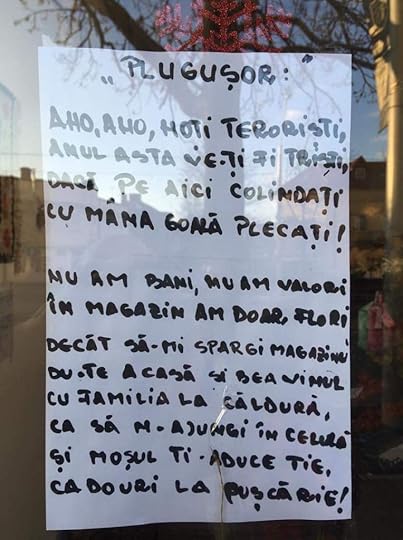 „PLUGUȘOR:"
AHO, AHO, HOȚI TERORISTI,
ANUL ASTA VEȚI FI TRIȘTI,
DACĂ PE AICI COLINDAȚI
CU MÂNA GOALĂ PLECAȚI!
NU AM BANI, NU AM VALORI
ÎN MAGAZIN AM DOAR FLORI
DECÂT SĂ-MI SPARGI MAGAZINU
DU-TE ACASĂ SI BEA VINUL
CU FAMILIA LA CĂLDURĂ,
CA SĂ N-AJUNGI ÎN CELULĂ
ȘI MOȘUL TI-ADUCE TIE,
CADOURI LA PUȘCĂRIE!